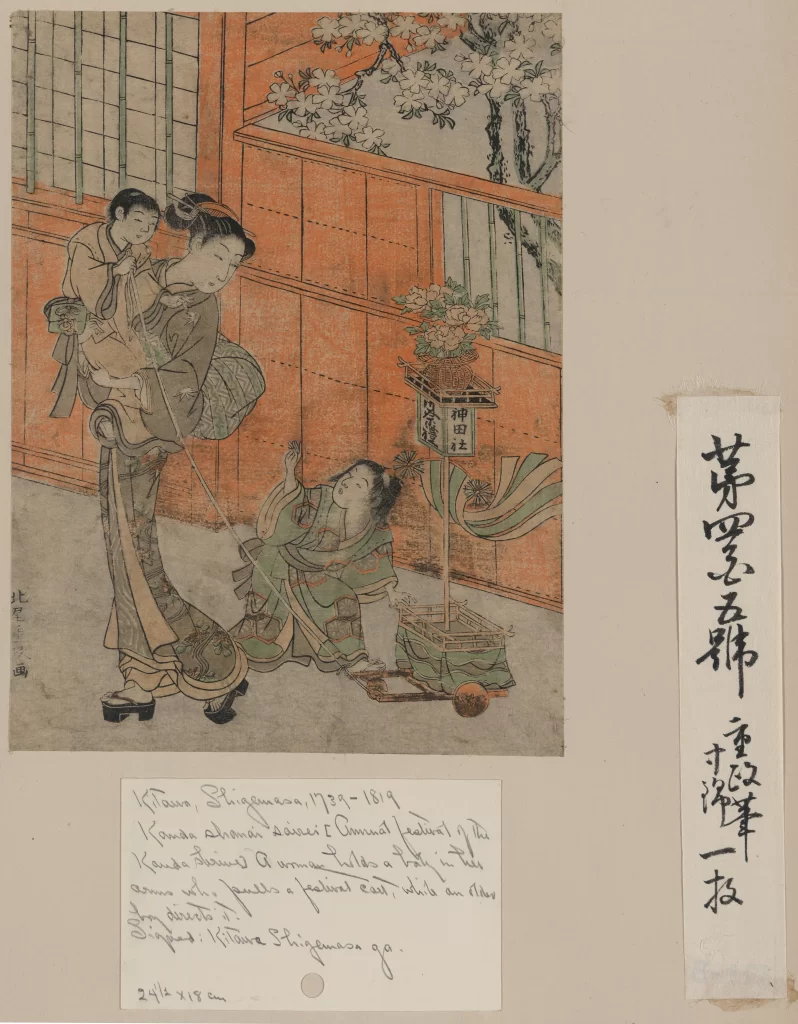 神田社
北尾重政画
Kitawo, Shigemasa, 1739-1819
Kanda shanai sairei [Annual festival of the
Kanda Shrine] A woman holds a baby in her
arms who pulls a festival cart, while an older
boy directs it.
Signed: Kitawo Shigemasa ga.
24 1/2 x 18 cm
五號
重政筆
一枚